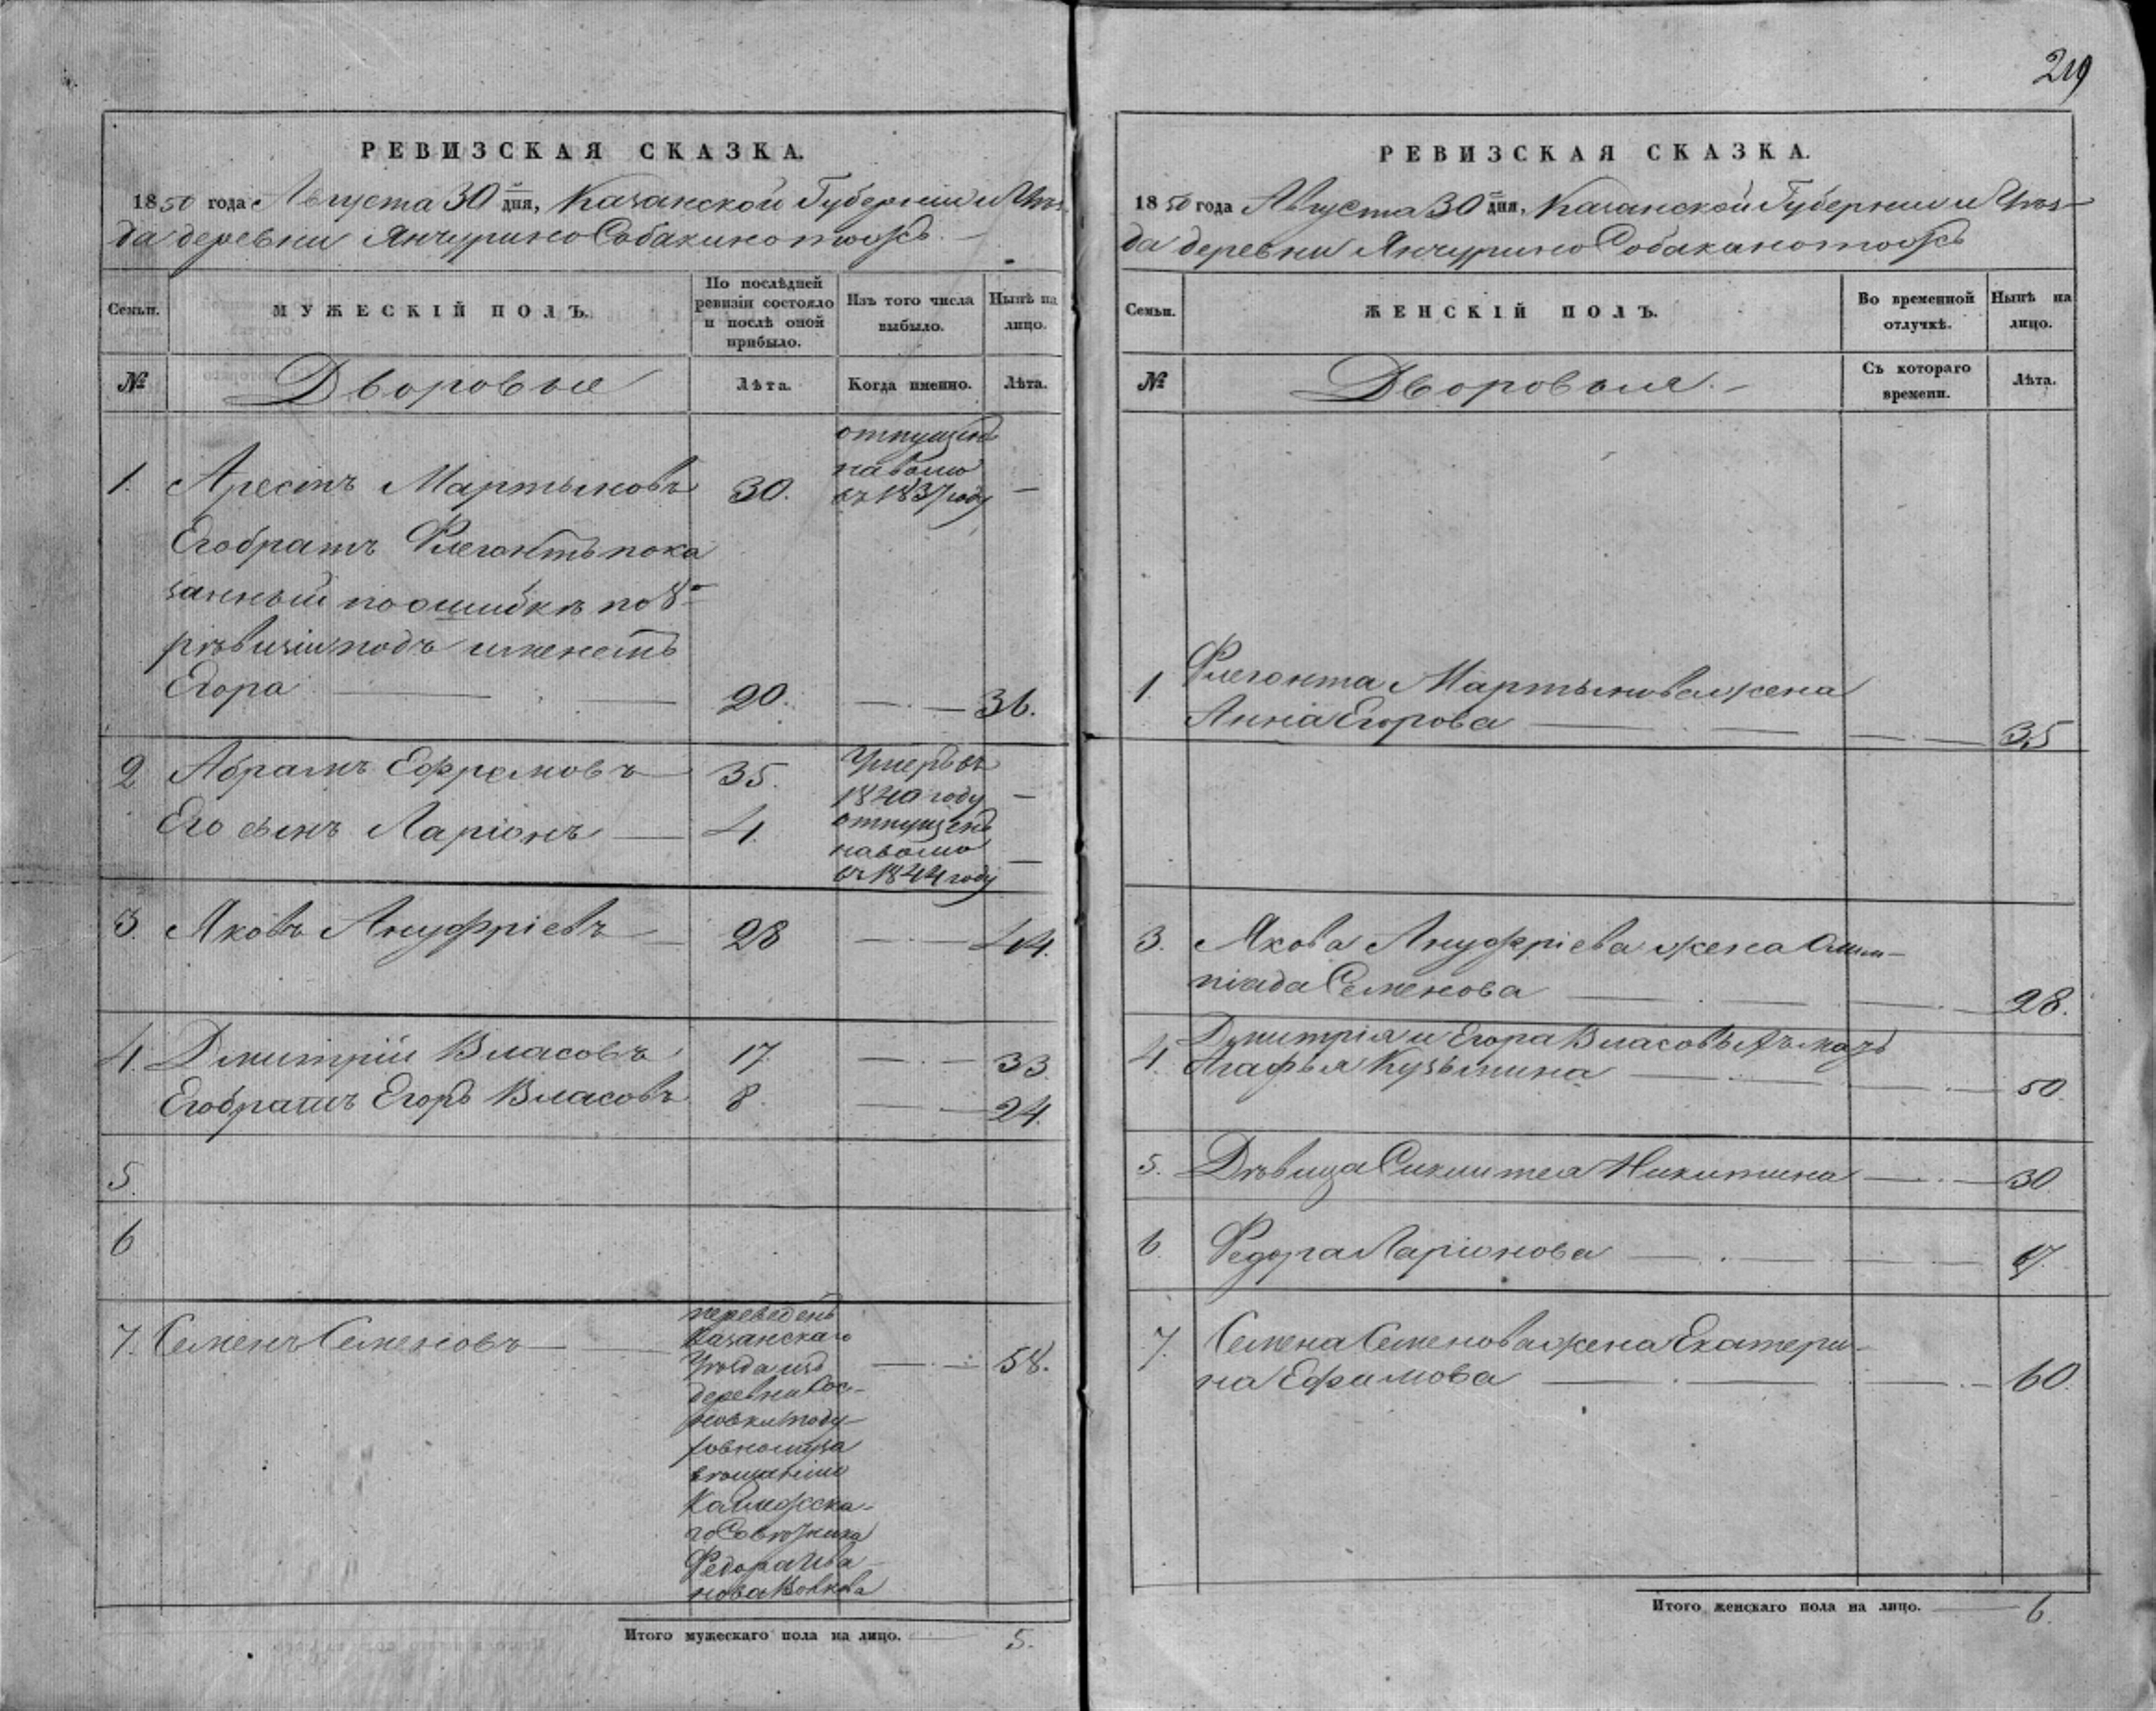 219
РЕВИЗСКАЯ СКАЗКА.
1850 года Августа 30 дня, Казанской Губерніи и Уѣз-
да деревни Янчурино Собакино тожъ.
Семьи. МУЖЕСКІЙ ПОЛЪ. По послѣдней ревизіи состояло и послѣ оной прибыло. Изъ того числа выбыло. Нынѣ на лицо.
№ Дворовые Лѣта. Когда именно. Лѣта.
отпущенъ
на волю
1. Арестъ Мартыновъ 30. въ 1837 году —
Его брат Флегонтъ пока
занный по ошибкѣ по 8й
рѣвизіи подъ именемъ
Егора 20. — 36.
2 Абрамъ Ефремовъ 35. Умеръ въ
1840 году —
Его сынъ Ларіонъ 4. отпущенъ
на волю —
въ 1844 году
3. Яковъ Ануфріевъ 28 — 44.
4. Дмитрій Власовъ 17. — 33.
Его братъ Егоръ Власовъ 8. — 24.
5.
6
7. Семенъ Семеновъ — переведенъ
Казанскаго
Уѣзда изъ — 58.
деревни Сос-
новки
владенію
го Совѣтника
Федора Ива-
нова
Итого мужескаго пола на лицо. 5.
РЕВИЗСКАЯ СКАЗКА.
1850 года Августа 30 дня, Казанской Губерніи и Уѣз-
да деревни Янчурино Собакино тожъ
Семьи. ЖЕНСКІЙ ПОЛЪ. Во временной отлучкѣ. Нынѣ на лицо.
№ Дворовыя. Съ котораго времени. Лѣта.
1. Флегонта Мартынова жена
Анна Егорова — 35
3. Якова Ануфріева жена Олим-
піада Семенова — 28.
4. Дмитрія и Егора Власовыхъ мать
Агафья Кузьмина — 50.
5. Дѣвица Никитина — 30
6. Ларіонова — 17.
7. Семена Семенова жена Екатери-
на Ефимова — 60.
Итого женскаго пола на лицо. 6.